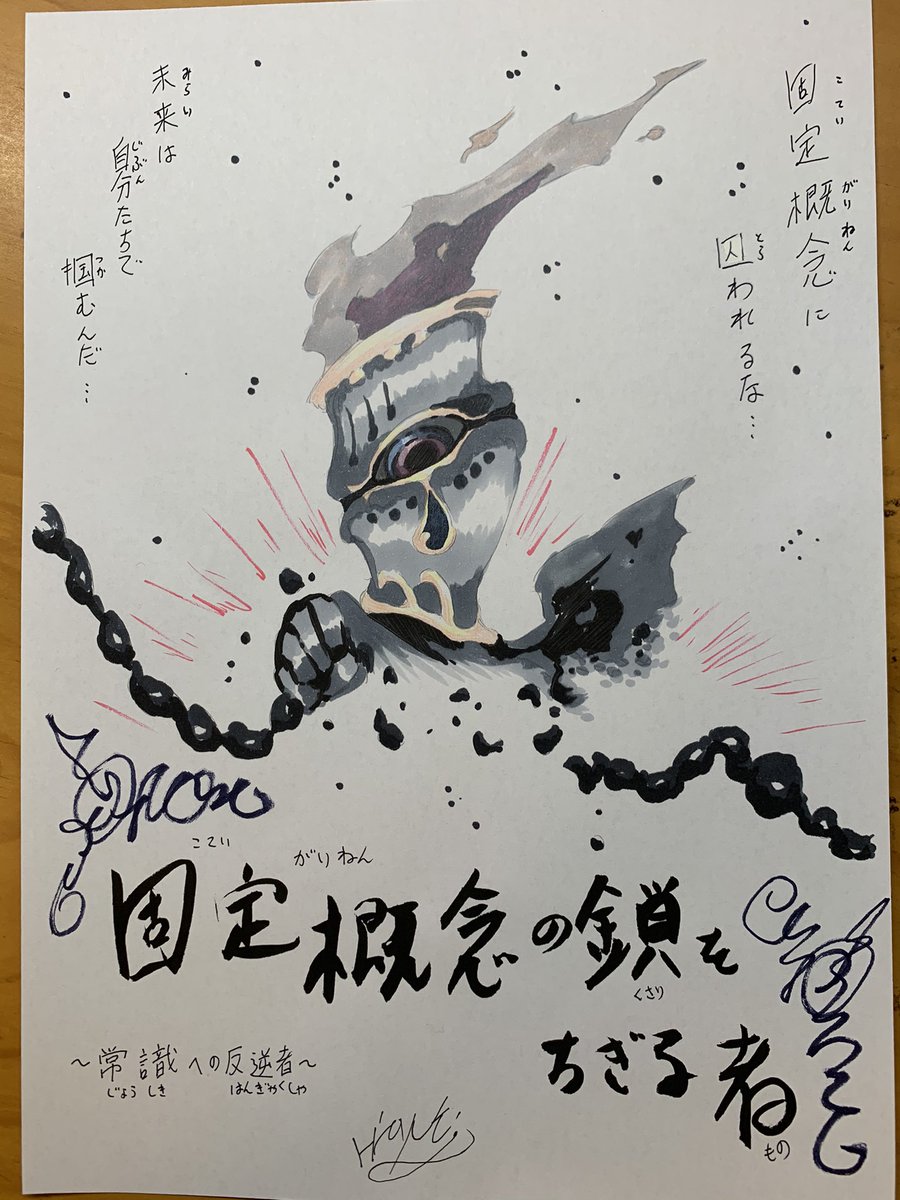 固定概念に
こてい がいねん
囚われるな…
とら
未来は
みらい
自分たちで
じぶん
掴むんだ…
つか
こてい がいねん
固定概念の鎖を
くさり
ちぎる者
もの
～常識への反逆者～
じょうしき はんぎゃくしゃ